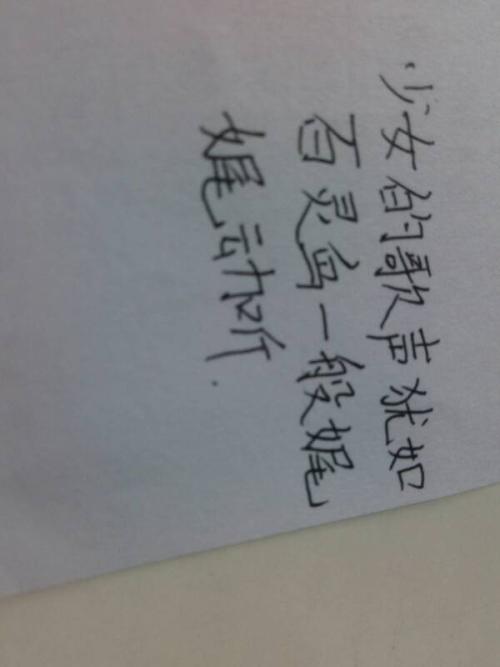 少女的歌声犹如
百灵鸟一般娓
娓动听.